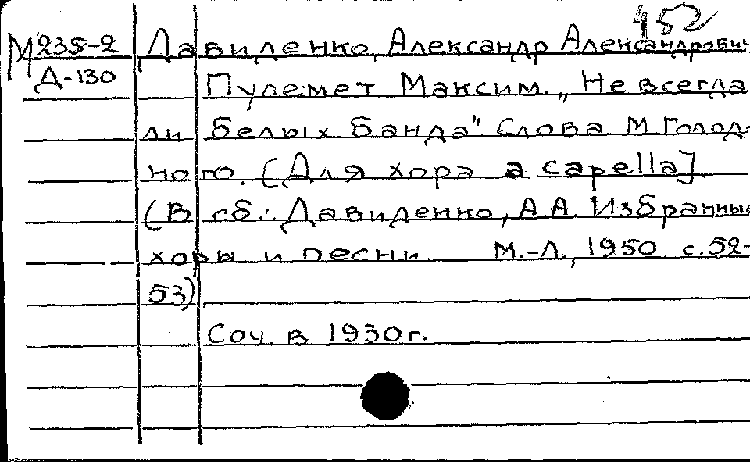 452
М235-2 Давиденко, Александр Александрович
Д-130 Пулемет Максим. „Не всегда
ли белых банда" Слова М. Голод-
ного. [Для хора a capella]
(В сб.: Давиденко, А.А. Избранные
хоры и песни М.-Л., 1950 с.52-
53)
Соч. в 1930г.